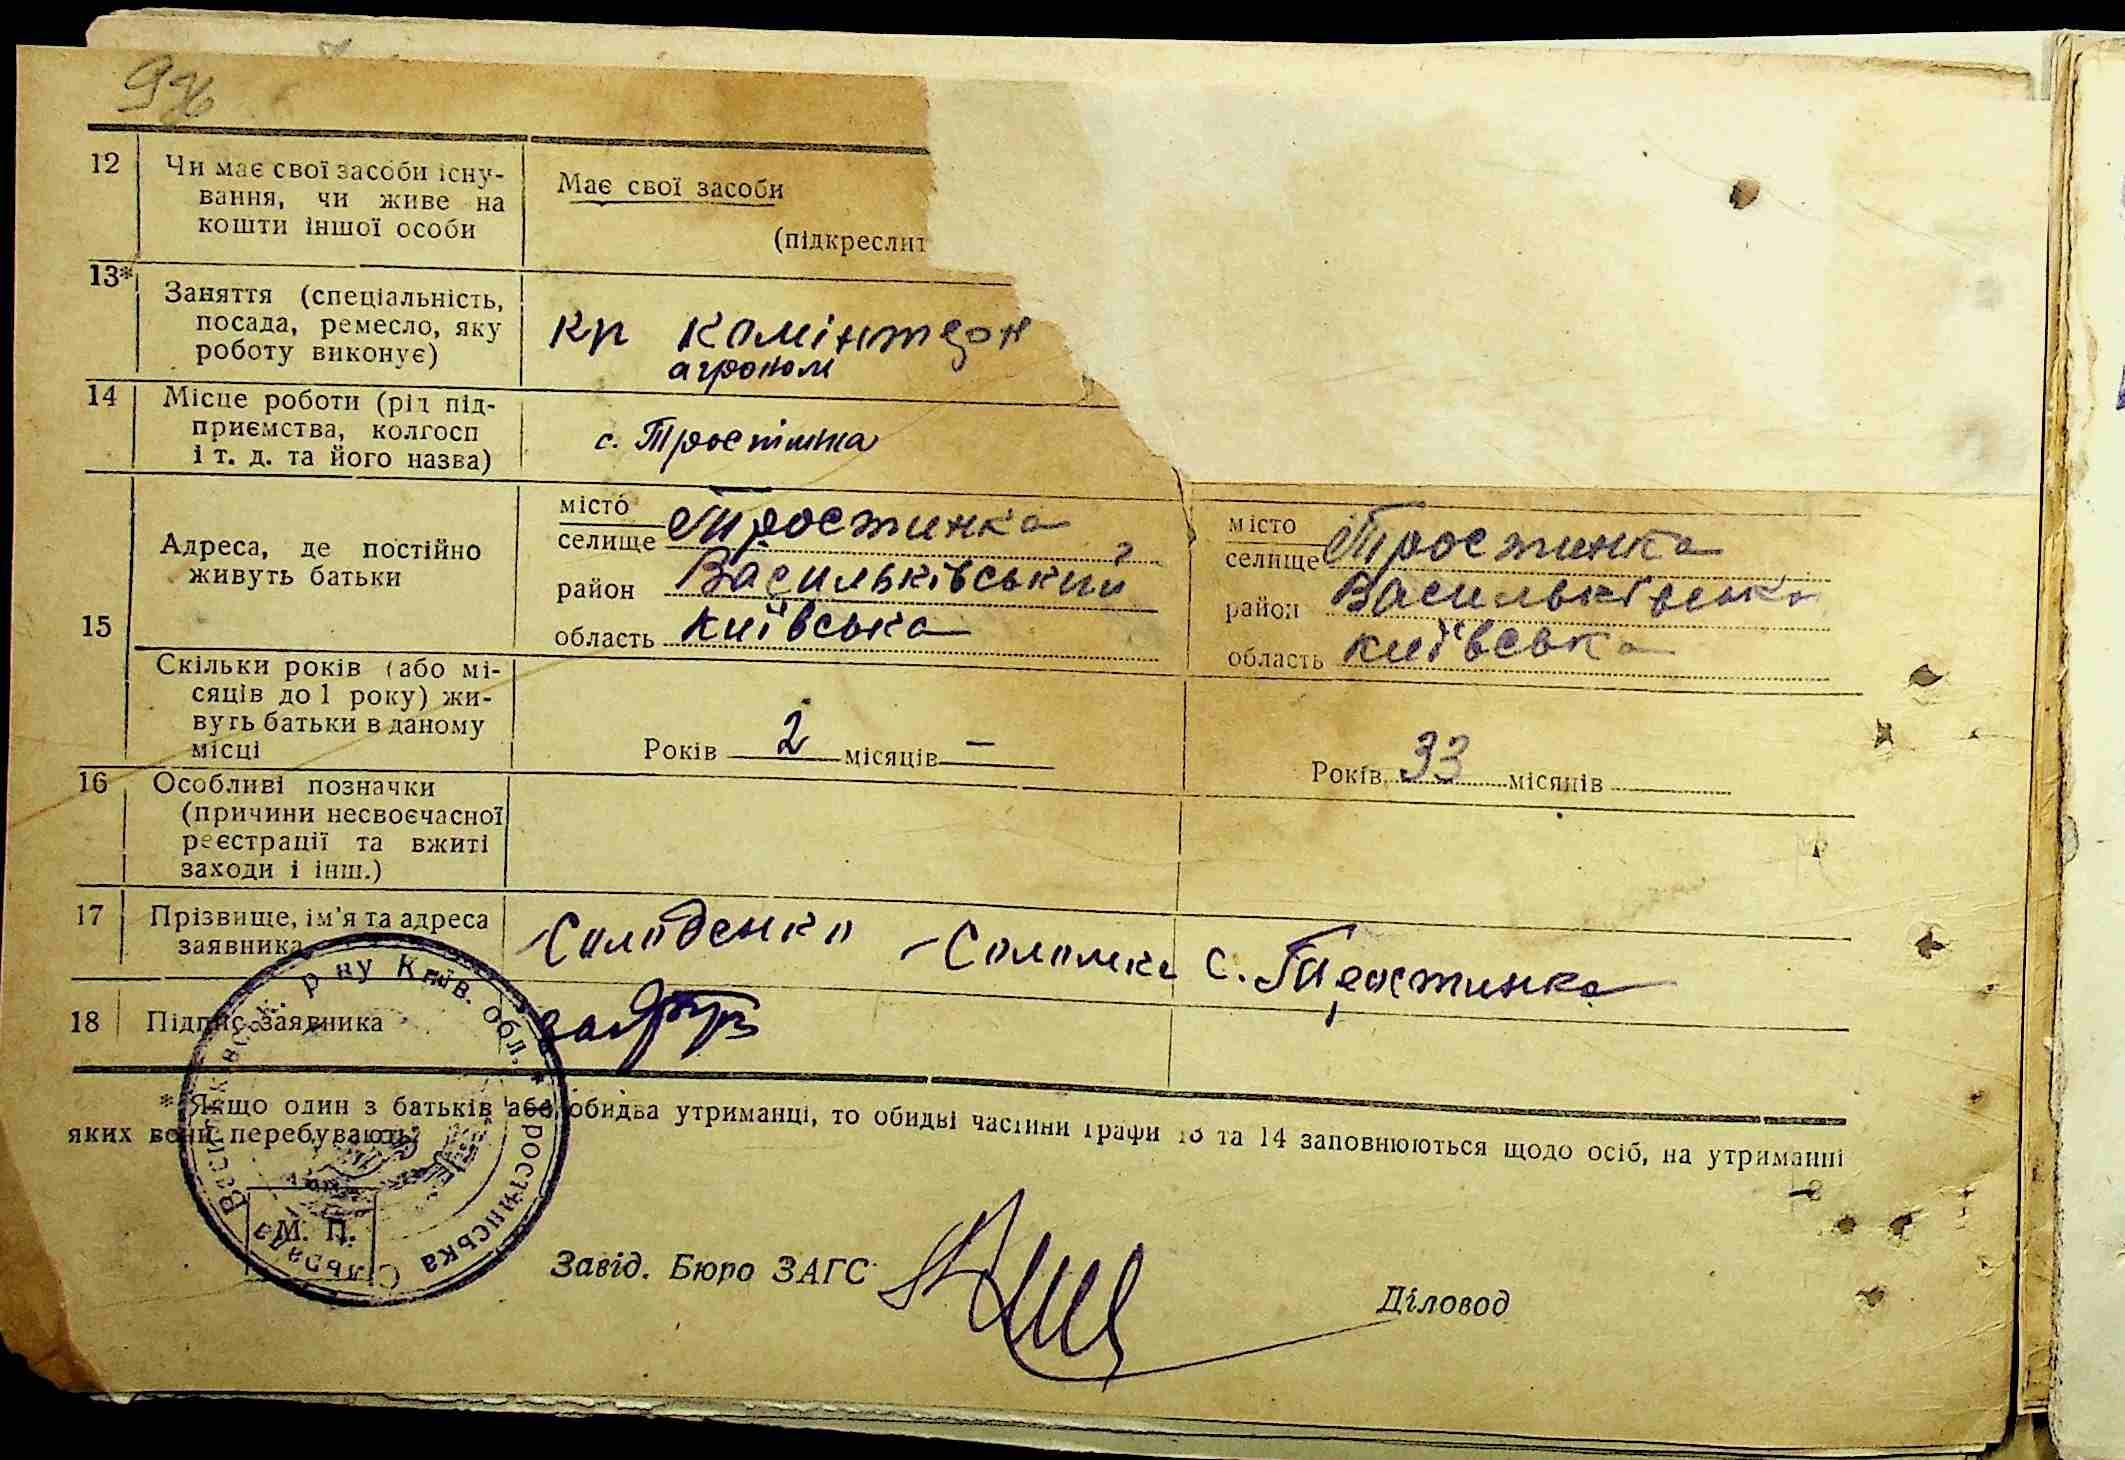 996
12 Чи має свої засоби існу-
вання, чи живе на
кошти іншої особи
Має свої засоби
(підкреслит
13* Заняття (спеціальність,
посада, ремесло, яку
роботу виконує)
кр Комінтерн
агроном
14 Місце роботи (рід під-
приємства, колгосп
і т. д. та його назва)
с. Тростинка
15 Адреса, де постійно
живуть батьки
місто
селище Тростинка
район Васильківський
область Київська
місто
селище Тростинка
район Васильківськ
область Київська
Скільки років (або мі-
сяців до 1 року) жи-
вуть батьки в даному
місці
Років 2 місяців —
Років 33 місяців
16 Особливі позначки
(причини несвоєчасної
реєстрації та вжиті
заходи і інш.)
17 Прізвище, ім'я та адреса
заявника
Солоденко Соломка с. Тростинка
18 Підпис заявника
* Якщо один з батьків або обидва утриманці, то обидві частини графи 13 та 14 заповнюються щодо осіб, на утриманні
яких вони перебувають.
Васильківськ. р-ну Київ. обл. * Тростинська Сільрада
М. П.
Завід. Бюро ЗАГС
Діловод